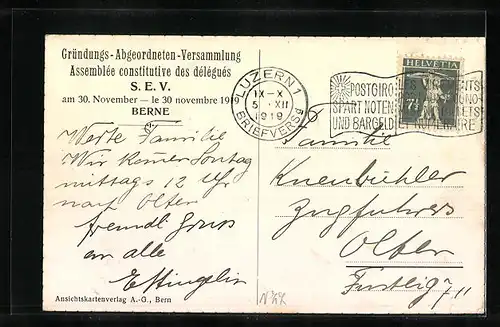 Gründungs-Abgeordneten-Versammlung
Assemblée constitutive des délégués
S. E. V.
am 30. November — le 30 novembre 1919
BERNE
LUZERN 1
IX-X
5. XII
1919
BRIEFVERS
POSTGIRO
SPART NOTEN
UND BARGELD
HELVETIA
7½
Werte Familie
Wir komen Sontag
mittags 12 Uhr
nach Olten
freundl Gruss
an alle
Familie
Knenbühler
Zugführers
Olten
Ansichtskartenverlag A.-G., Bern